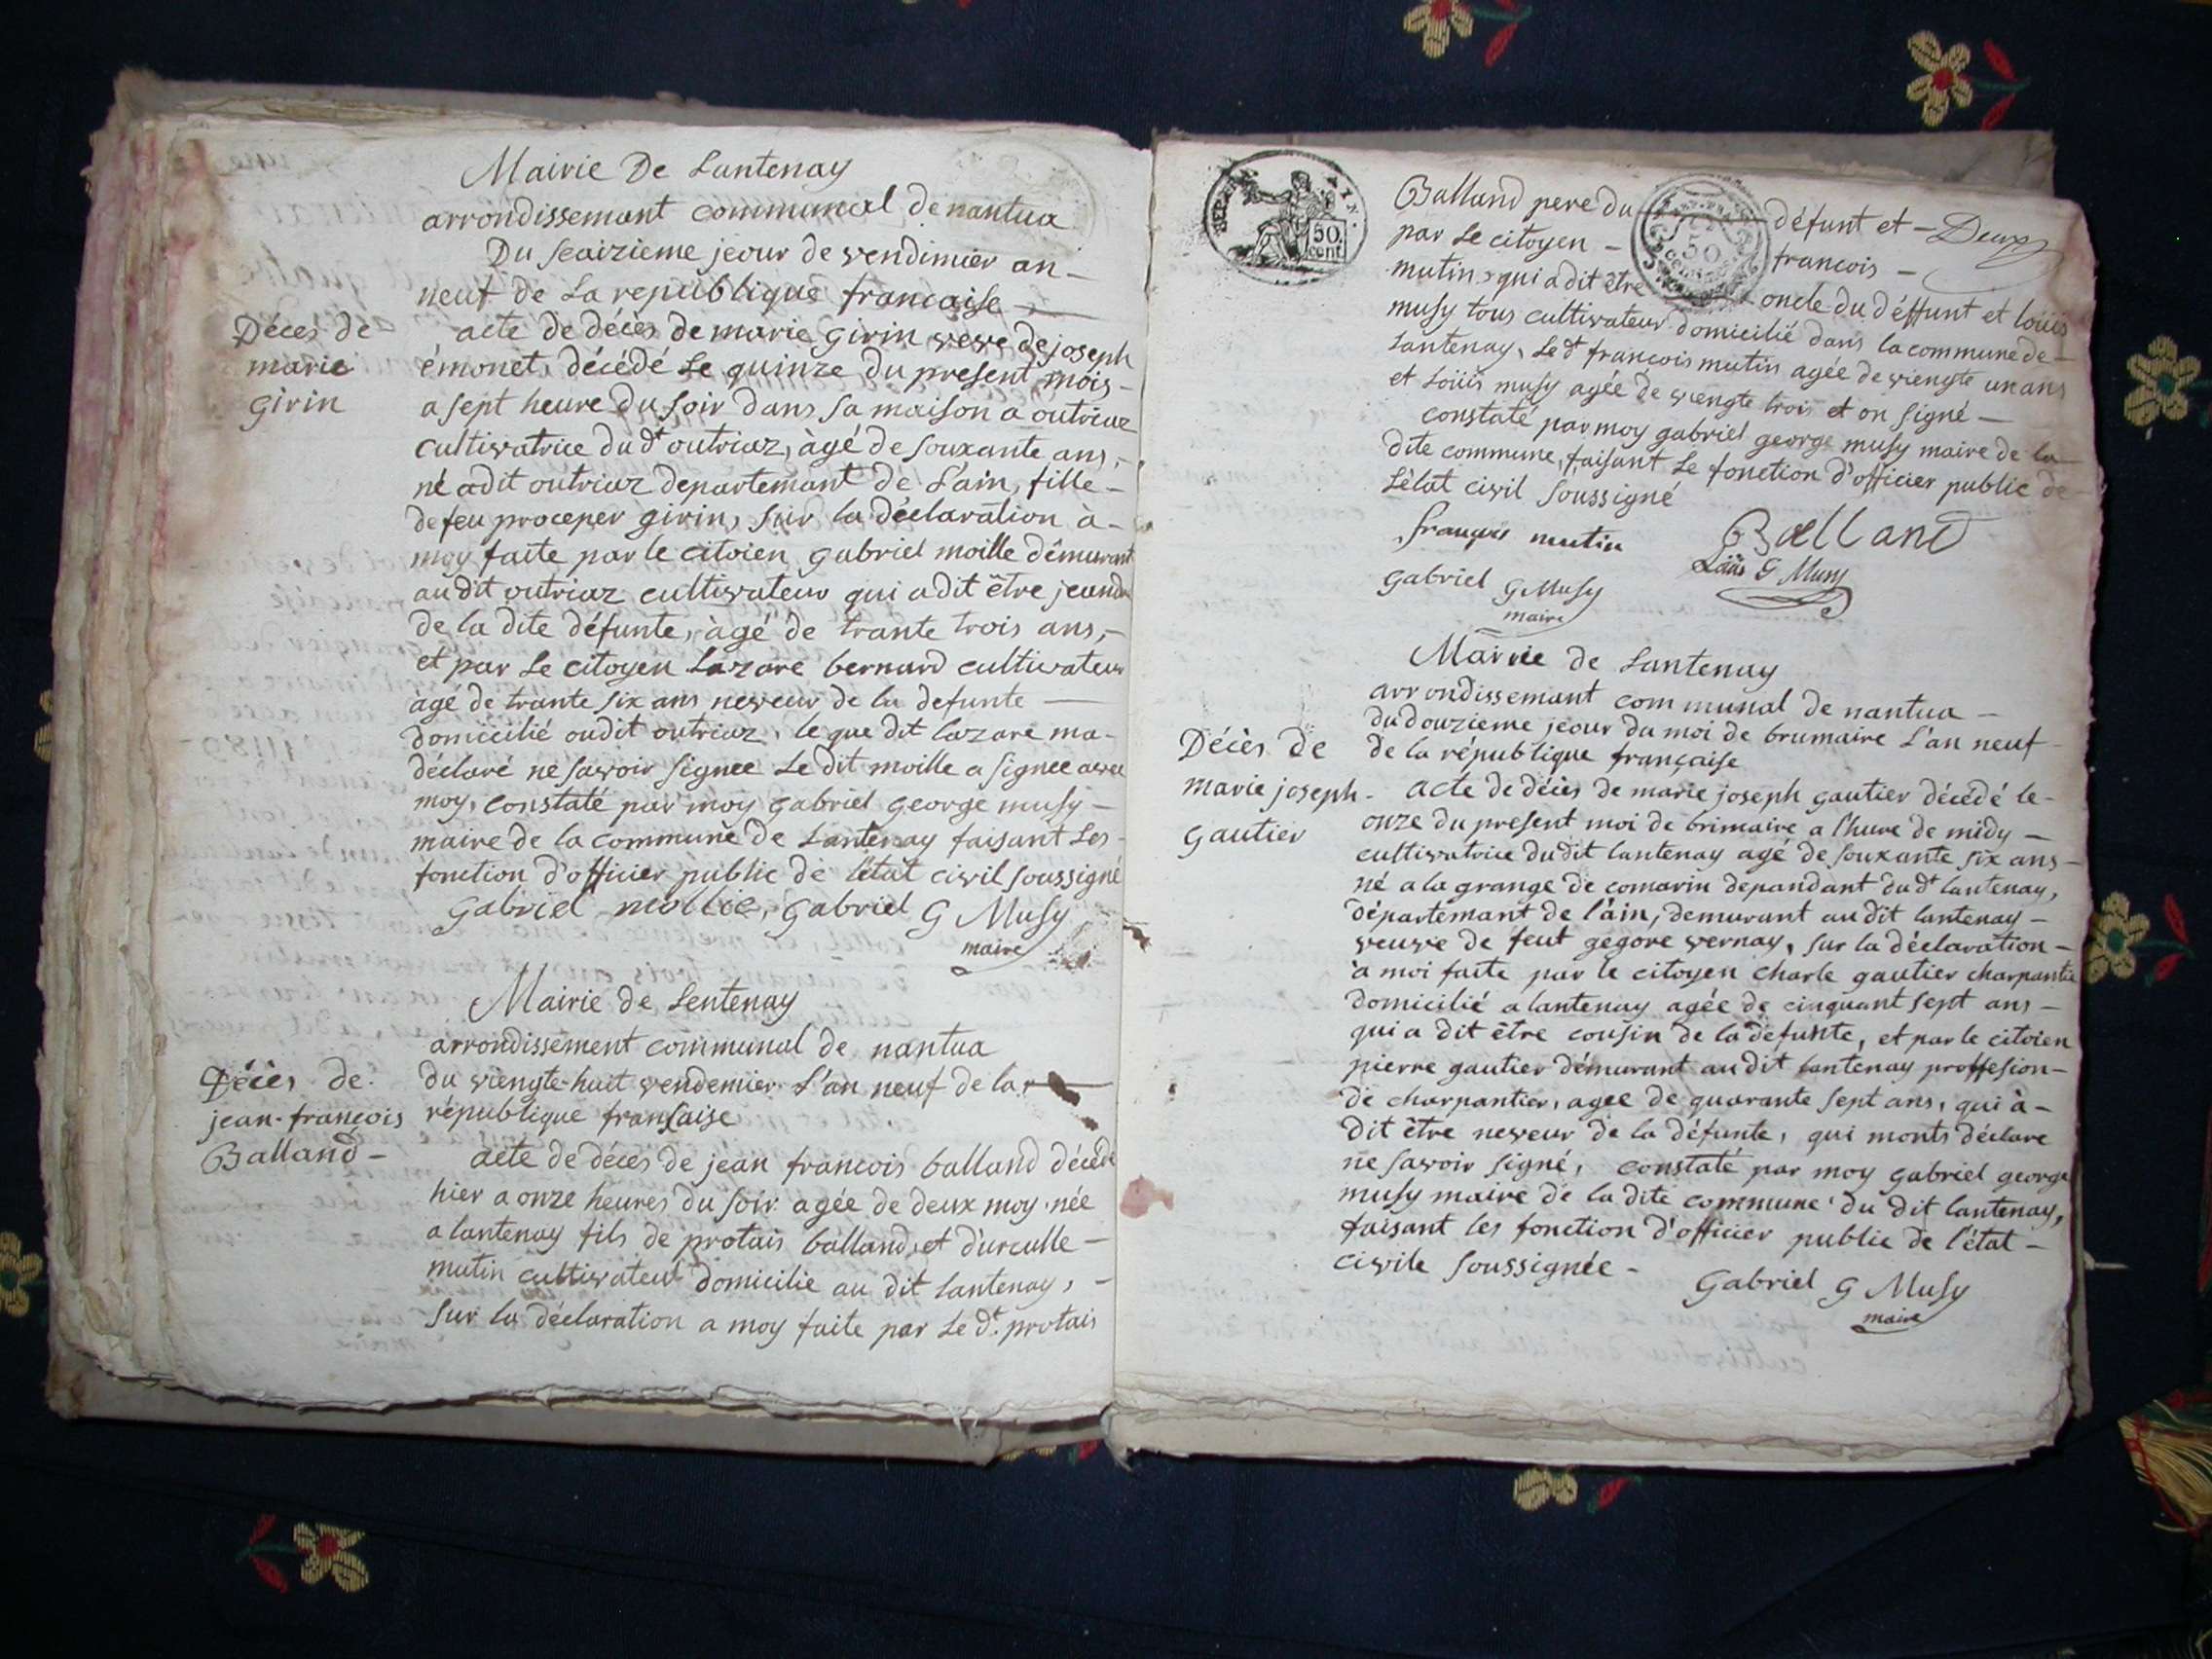 Mairie De Lantenay
arrondissemant communal de nantua
Du seaizieme jeour de vendimier an
neuf de La republique francaise
Décès de
marie
girin
acte de décès de marie girin veve de joseph
émonet, décédé Le quinze du present mois
a sept heure du soir dans sa maison a outriaz
cultivatrice du dt outriaz, àgé de souxante ans,
né adit outriaz departemant de L'ain, fille
de feu proceper girin, sur la déclaration à
moy faite par le citoien gabriel moille démurant
au dit outriaz cultivateur qui a dit être jeandr
de la dite défunte, àgé de trante trois ans,
et par Le citoyen Lazare bernard cultivateur
àgé de trante six ans neveur de la defunte
domicilié oudit outriaz, le que dit lazare ma
déclaré ne savoir signee Le dit moille a signee avec
moy, constaté par moy gabriel george musy
maire de la commune de Lantenay faisant Les
fonction d'officier public de l'état civil soussigné
gabriel mollie, gabriel G Musy
maire
Mairie de Lentenay
arrondissement communal de nantua
Décès de
jean-francois
Balland
du viengte-huit vendemier L'an neuf de la
république fransaise
acte de décès de jean francois balland décédé
hier a onze heures du soir agée de deux moy née
a lantenay fils de protais balland, et d'urculle
mutin cultivateur domicilie au dit Lantenay,
sur la déclaration a moy faite par Le dt. protais
DEPART. AIN.
50
cent
50
Balland pere du défunt et Deux
par Le citoyen francois
mutin, qui a dit être oncle du déffunt et loüis
musy tous cultivateur domicilié dans la commune de
Lantenay, Le dt francois mutin agée de viengte un ans
et Loüis musy agée de viengte trois et on signé
constaté par moy gabriel george musy maire de la
dite commune, faisant Le fonction d'officier public de
L'èlat civil soussigné
françois mutin Balland
Loüis G Musy
gabriel G Musy
maire
Mairie de Lantenay
arrondissemant communal de nantua
du douzieme jeour du moi de brumaire L'an neuf
de la république française
Décès de
marie joseph
gautier
acte de décès de marie joseph gautier décédé le
onze du present moi de brimaire a l'hure de midy
cultivatrice du dit lantenay agé de souxante six ans
né a la grange de comarin depandant du dt lantenay,
département de l'àin, demurant au dit lantenay
veuve de feut gegore vernay, sur la déclaration
à moi faite par le citoyen charle gautier charpantie
domicilié a lantenay agée de cinquant sept ans
qui a dit être cousin de la defunte, et par le citoien
pierre gautier démurant au dit lantenay proffesion
de charpantier, agee de quarante sept ans, qui à
dit être neveur de la défunte, qui monts déclare
ne savoir signé, constaté par moy gabriel george
musy maire de la dite commune du dit lantenay,
faisant les fonction d'officier public de l'état
civile soussignée
Gabriel G Musy
maire